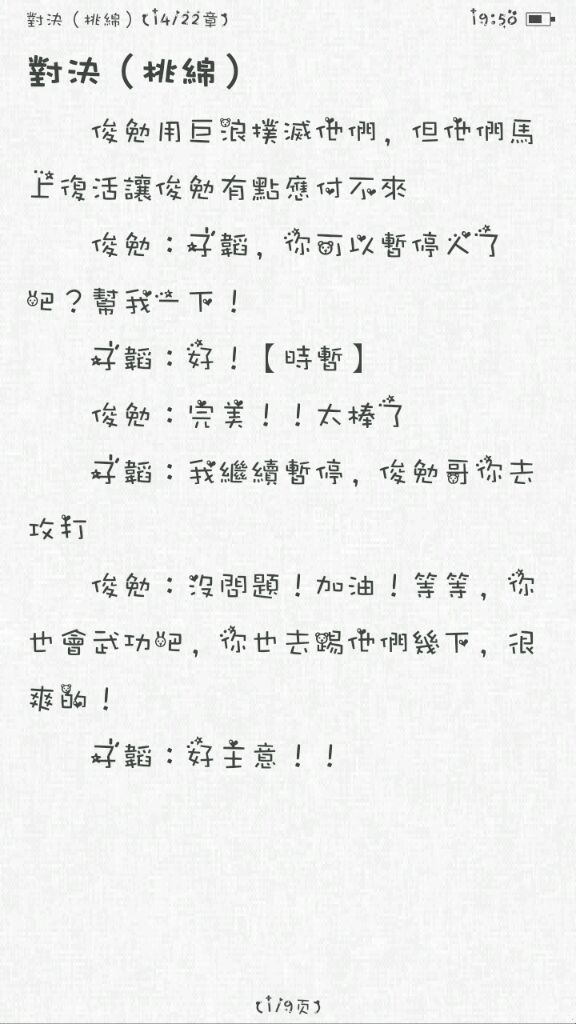 對決（挑綿）(14/22章)
19:50
對決（挑綿）
俊勉用巨浪撲滅他們，但他們馬
上復活讓俊勉有點應付不來
俊勉：子韜，你可以暫停火了
吧？幫我一下！
子韜：好！【時暫】
俊勉：完美！！太棒了
子韜：我繼續暫停，俊勉哥你去
攻打
俊勉：沒問題！加油！等等，你
也會武功吧，你也去踢他們幾下，很
爽的！
子韜：好主意！！
(1/9页)